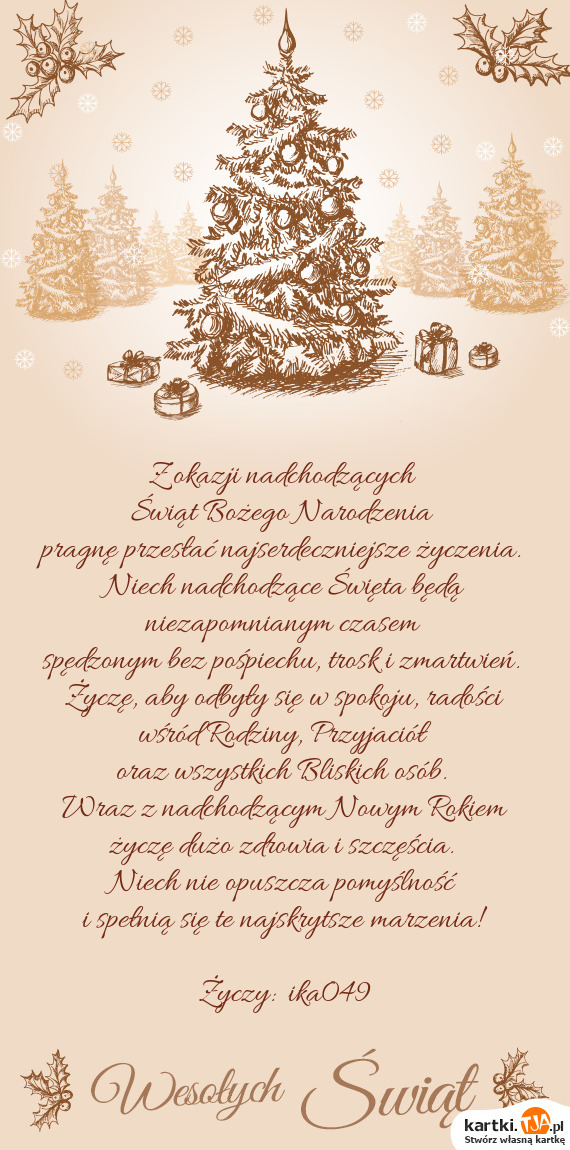 Z okazji nadchodzących
Świąt Bożego Narodzenia
pragnę przesłać najserdeczniejsze życzenia.
Niech nadchodzące Święta będą
niezapomnianym czasem
spędzonym bez pośpiechu, trosk i zmartwień.
Życzę, aby odbyły się w spokoju, radości
wśród Rodziny, Przyjaciół
oraz wszystkich Bliskich osób.
Wraz z nadchodzącym Nowym Rokiem
życzę dużo zdrowia i szczęścia.
Niech nie opuszcza pomyślność
i spełnią się te najskrytsze marzenia!
Życzy: ika049
Wesołych Świąt
kartki.TJA.pl
Stwórz własną kartkę